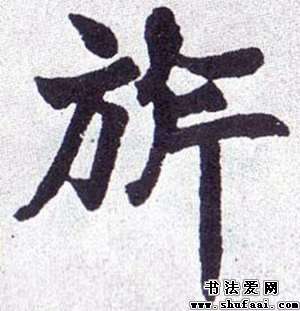 旂
书法爱网
www.shufaai.com